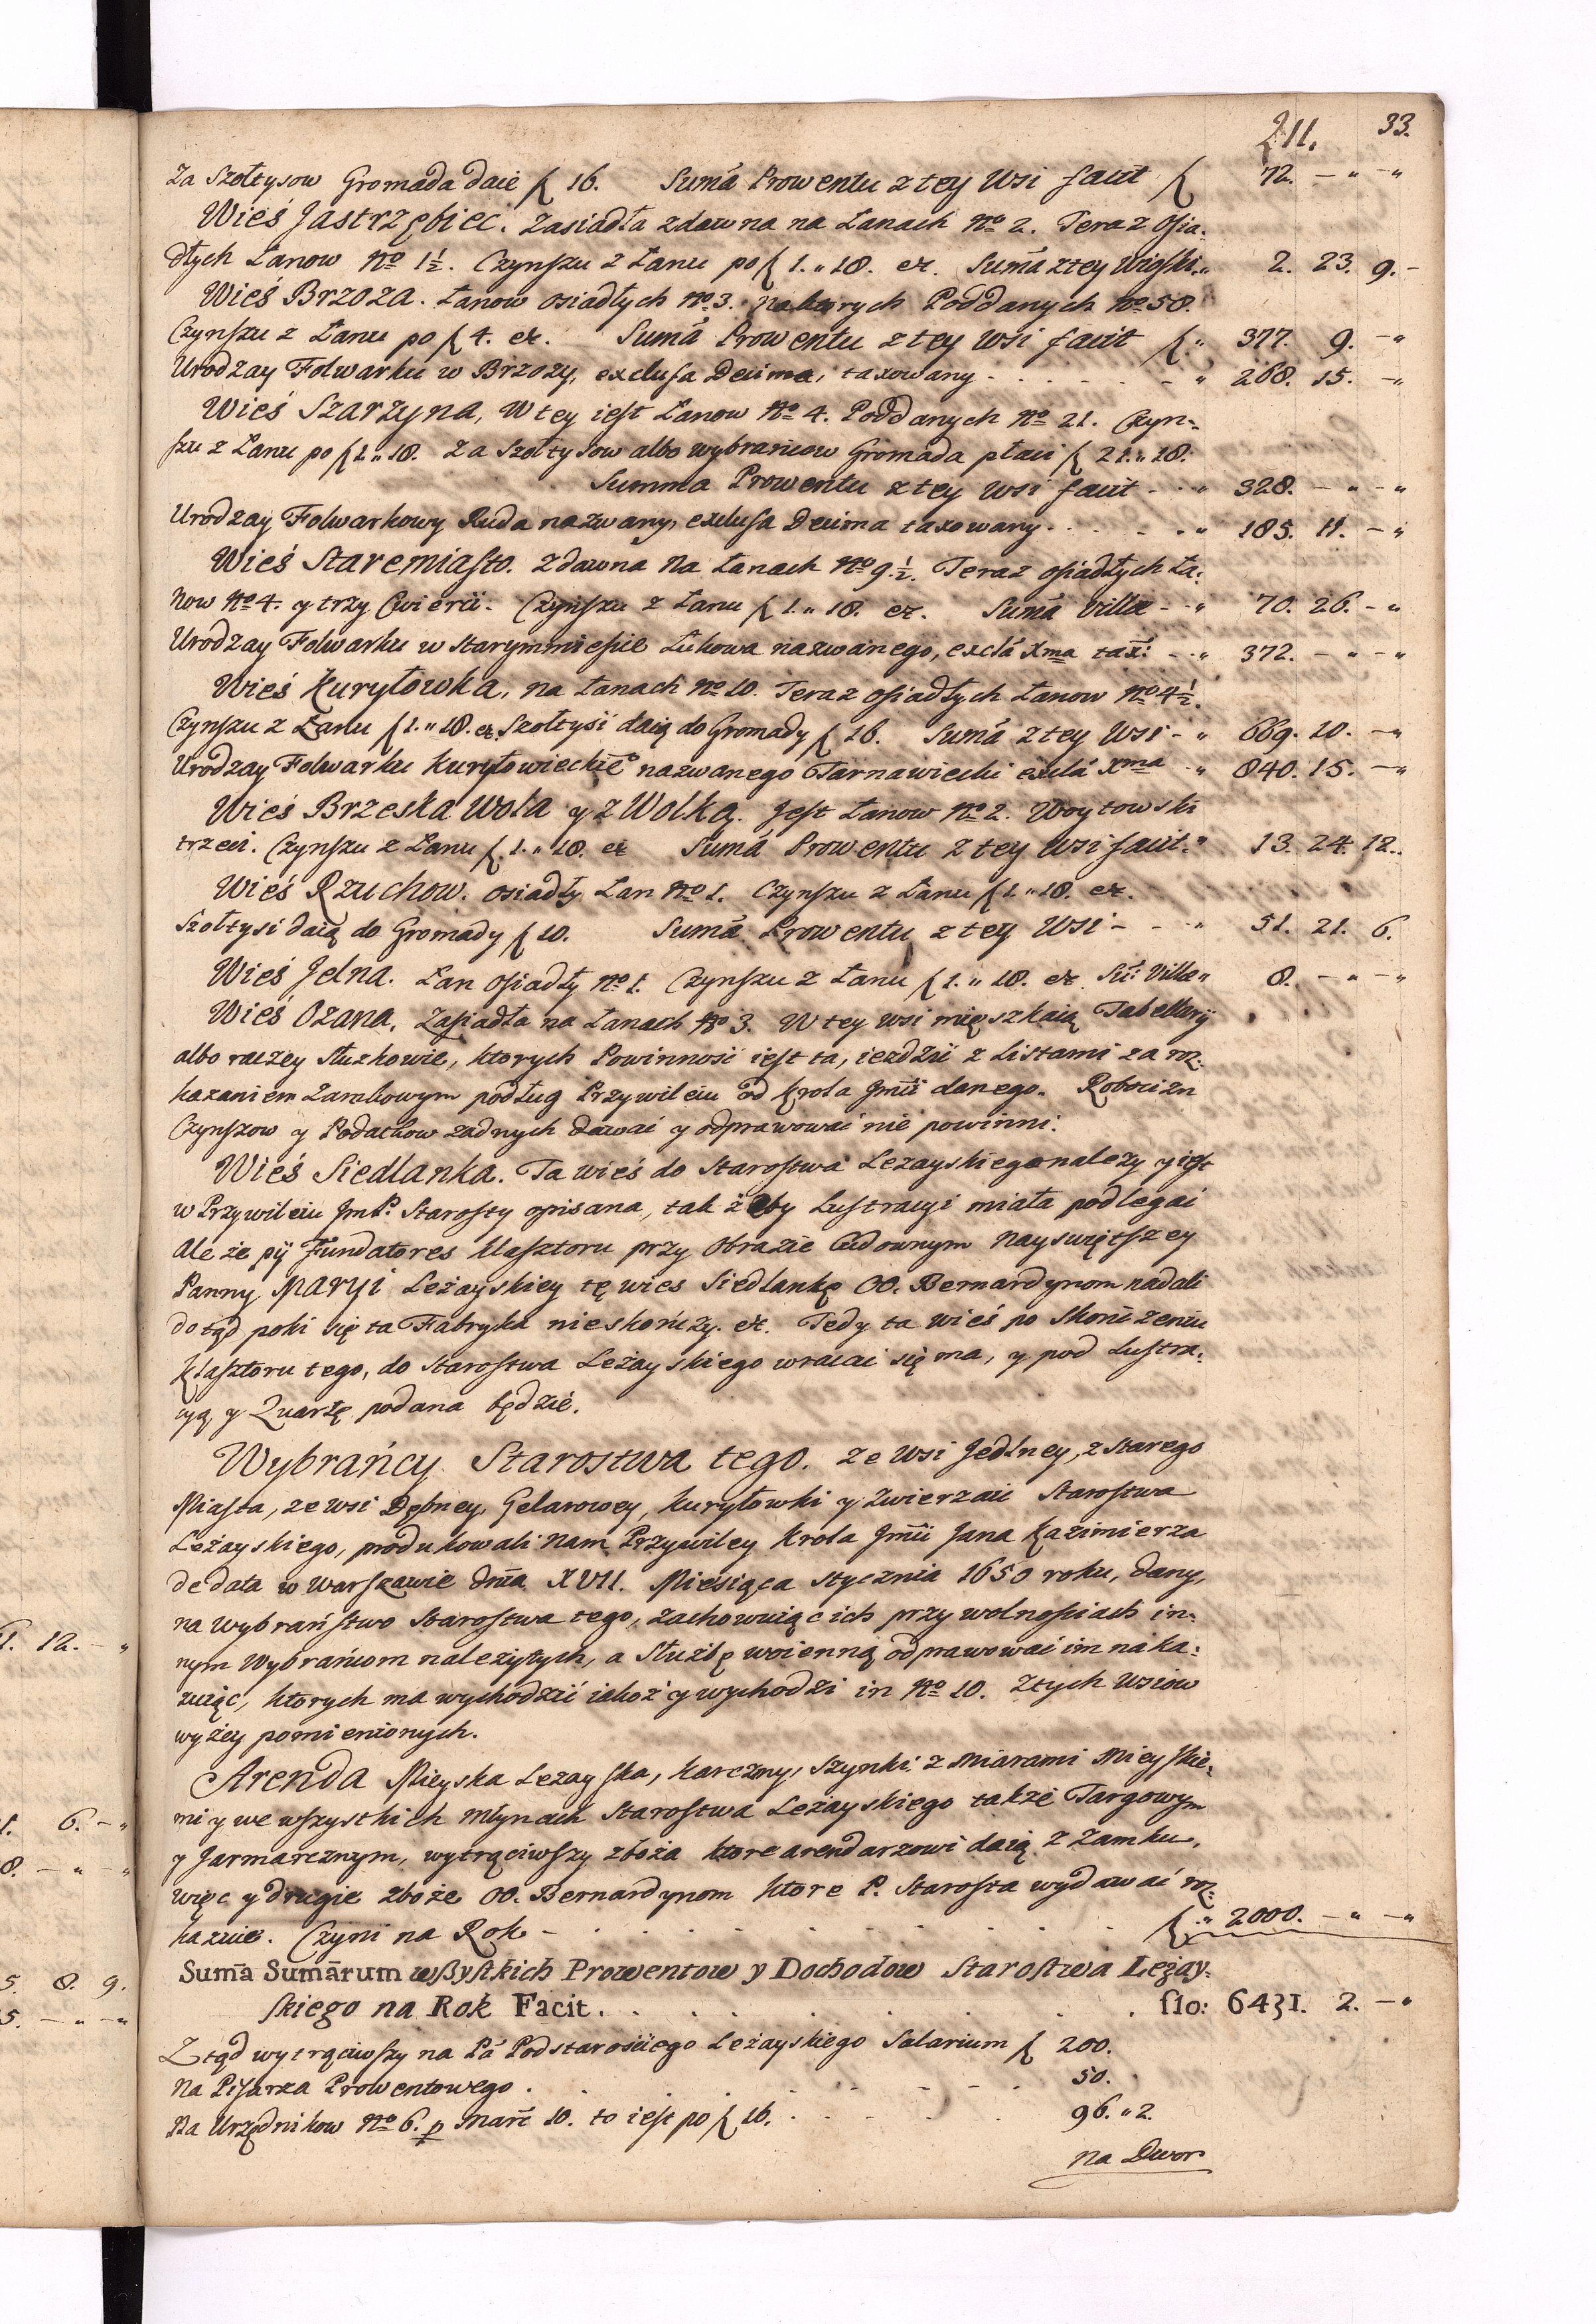 211. 33.
Za Szołtysow Gromada daie f 16. Suma Prowentu z tey Wsi facit f 72. – " – "
Wieś Jastrzębiec. Zasiadła zdawna na Łanach No 2. Teraz osia:
dłych Łanow No 1½. Czynszu z Łanu po f 1. " 18. etc. Suma z tey Wioski " 2. 23. 9. –
Wieś Brzoza. Łanow osiadłych No 3. na ktorych Poddanych No 58.
Czynszu z Łanu po f 4. etc. Suma Prowentu z tey Wsi facit f " 377. 9. – "
Urodzay Folwarku w Brzozy, exclusa Decima, taxowany - - - " 268. 15. – "
Wieś Szarzyna, W tey iest Łanow No 4. Poddanych No 21. Czyn:
szu z Łanu po f 1. " 18. Za Szołtysow albo wybrańcow Gromada płaci f 21. " 18.
Summa Prowentu z tey Wsi facit - - " 328. – " – "
Urodzay Folwarkowy Ruda nazwany, exclusa Decima taxowany - - - " 185. 11. – "
Wieś Staremiasto. Zdawna na Łanach No 9½. Teraz osiadłych Ła:
now No 4. y trzy Cwierci. Czynszu z Łanu f 1. " 18. etc. Suma Villæ - - " 70. 26. – "
Urodzay Folwarku w Starymmieście Łukowa nazwanego, exclâ Xma tax: - - " 372. – " – "
Wieś Kuryłowka, na Łanach No 10. Teraz osiadłych Łanow No 4½.
Czynszu z Łanu f 1. " 18. etc. Szołtysi daią do Gromady f 16. Suma z tey Wsi - " 669. 20. – "
Urodzay Folwarku Kuryłowieckie° nazwanego Tarnawiecki exclâ Xma - " 840. 15. – "
Wieś Brzeska Wola y z Wolką. Jest Łanow No 2. Woytowski
trzeci. Czynszu z Łanu f 1. " 18. etc Suma Prowentu z tey Wsi facit. " 13. 24. 12.
Wieś Rzuchow. osiadły Łan No 1. Czynszu z Łanu f 1 " 18. etc.
Szołtysi daią do Gromady f 10. Suma Prowentu z tey Wsi - - " 51. 21. 6.
Wieś Jelna. Łan osiadły No 1. Czynszu z Łanu f 1. " 18. etc. Su: Villæ " 8. – " – "
Wieś Ożana, Zasiadła na Łanach No 3. W tey wsi mięszkaią Tabellarij
albo raczey Służkowie, ktorych Powinnosć iest ta, iezdzić z Listami za roz:
kazaniem Zamkowym podług Przywileiu od Krola Jmći danego. Robocizn
Czynszow y Podatkow żadnych dawać y odprawować nie powinni.
Wieś Siedlanka. Ta wieś do Starostwa Leżayskiego należy y iest
w Przywileiu JmP. Starosty opisana, tak żeby Lustracyi miała podlegać
Ale że pij Fundatores Klasztoru przy Obrazie Cudownym Nayswiętszey
Panny Maryi Leżayskiey tę wies Siedlankę OO. Bernardynom nadali
dotąd poki się ta Fabryka nieskończy. etc. Tedy ta wieś po Skończeniu
Klasztoru tego, do Starostwa Leżayskiego wracać się ma, y pod Lustra:
cyą y Quartę podana będzie.
Wybrańcy Starostwa tego. Ze Wsi Jedlney, z Starego
Miasta, ze wsi Dębney, Gelarowey, Kuryłowki y Zwierzan Starostwa
Leżayskiego, produkowali nam Przywiley Krola Jmći Jana Kazimierza
de data w Warszawie dnia XVII. Miesiąca Stycznia 1650 roku, dany,
na Wybraństwo Starostwa tego, zachowuiąc ich przy wolnosciach in:
nym Wybrańcom należytych, a Służbę woienną odprawować im naka:
zuiąc, ktorych ma wychodzić iakoż y wychodzi in No 10. Z tych Wsiow
wyżey pomienionych.
Arenda Mieyska Leżayska, Karczmy, Szynki z Miarami Mieyskie:
mi y we wszystkich Młynach Starostwa Leżayskiego także Targowym
y Jarmarcznym, wytrąciwszy zboża ktore arendarzowi daią z Zamku,
więc y drugie zboże OO. Bernardynom ktore P. Starosta wydawać roz:
kazuie. Czyni na Rok - - - f " 2000. – " – "
Suma Sumārum wszystkich Prowentow y Dochodow Starostwa Leżay:
skiego na Rok Facit. . . . flo: 6431. 2. – "
Ztąd wytrąciwszy na Pa Podstarościego Leżayskiego Salarium f 200.
Na Pisarza Prowentowego . . . 50.
Na Urzędnikow No 6. p Marc 10. to iest po f 16. . . . 96. " 2.
na Dwor
1. 12. – "
1. 6. – "
8. – " – "
5. 8. 9.
5. – " – "